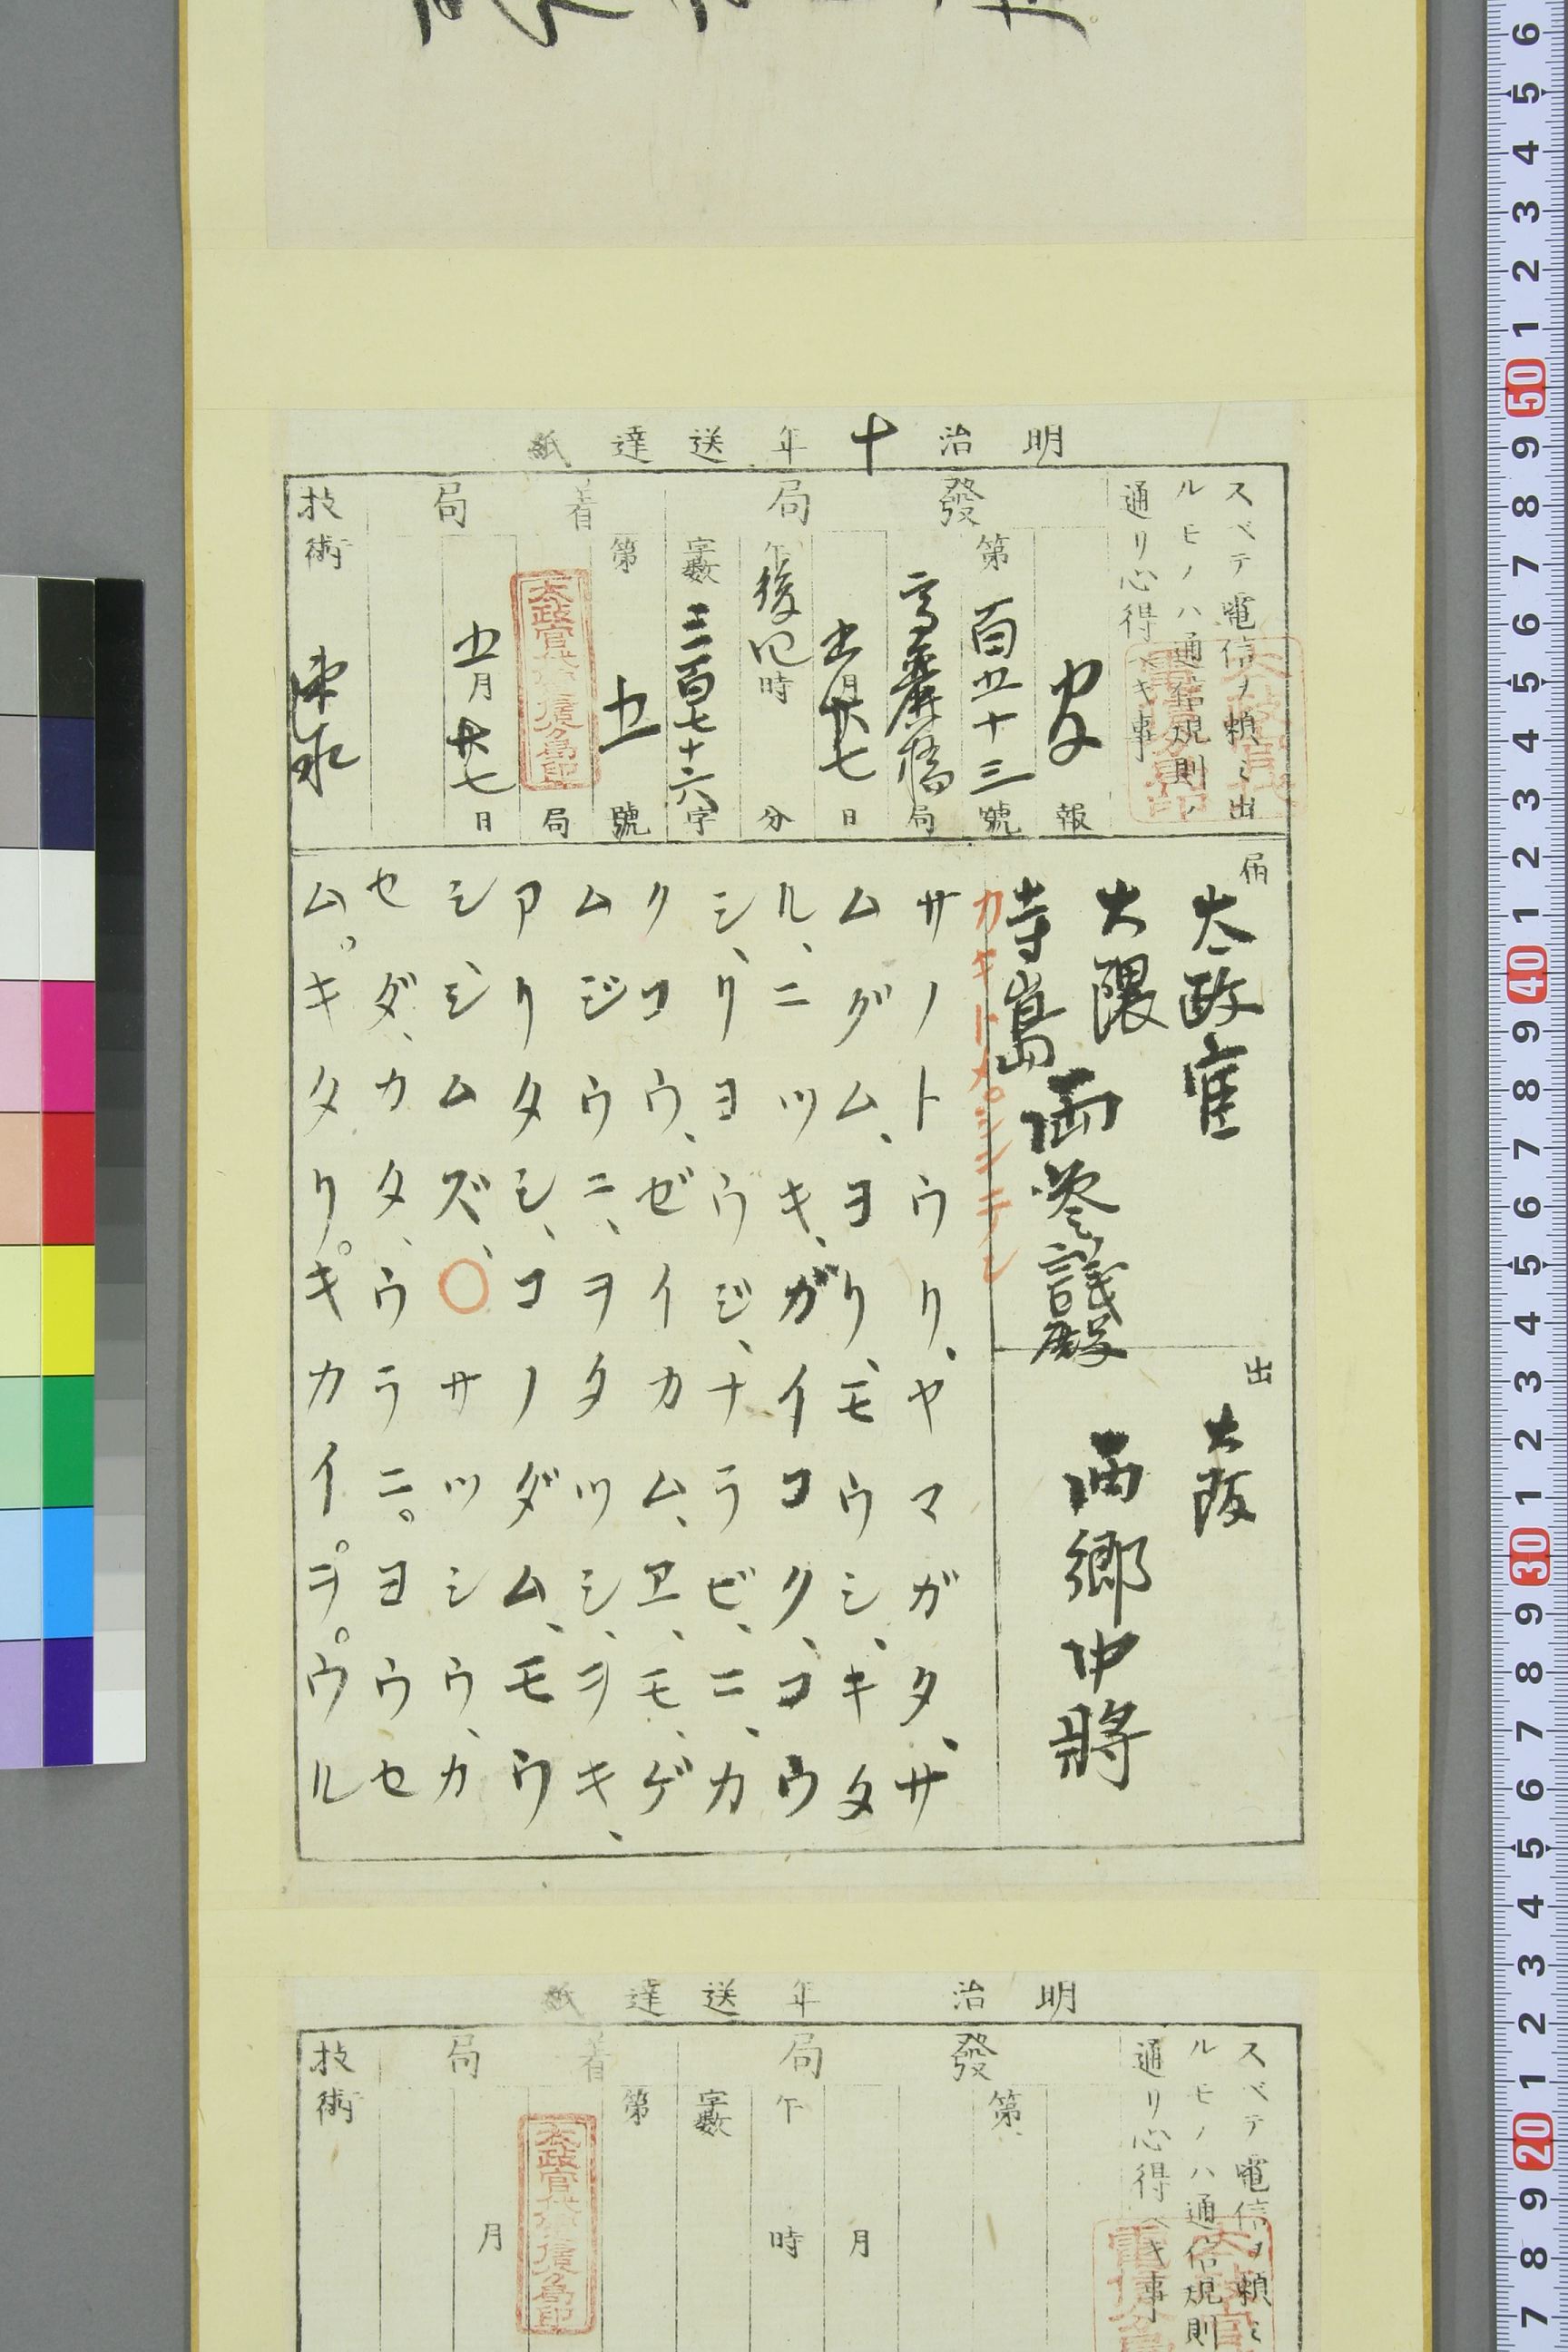 明治十年送達紙
スベテ電信ヲ頼ミ出
ルモノハ通信規則ノ
通リ心得ベキ事
發局
報
第百五十三號
高麗橋局
五月廿七日
午後四時 分
字數三百七十六字
着局
第五號
局
五月廿七日
技術
届
太政官
大隈
寺嶌
両参議殿
出
大阪
西郷中將
カキトメ。シンテン
サノトウリ、ヤマガタ、サ
ムダム、ヨリ、モウシ、キタ
ル、ニツキ、ガイコク、コウ
シ、リヨウジ、ナラビ、ニ、カ
クコウ、ゼイカム、ヱ、モ、ゲ
ムジウニ、ヲタツシ、ヲキ、
アリタシ、コノダム、モウ
シ、シムズ、○サツシウ、カ
セダ、カタ、ウラニ。ヨウセ
ム。キタリ。キカイ。ヲ。ウル
明治 年送達紙
スベテ電信ヲ頼ミ
ルモノハ通信規則
通リ心得ベキ事
發局
第
月
午 時
字數
着局
第
月
技術